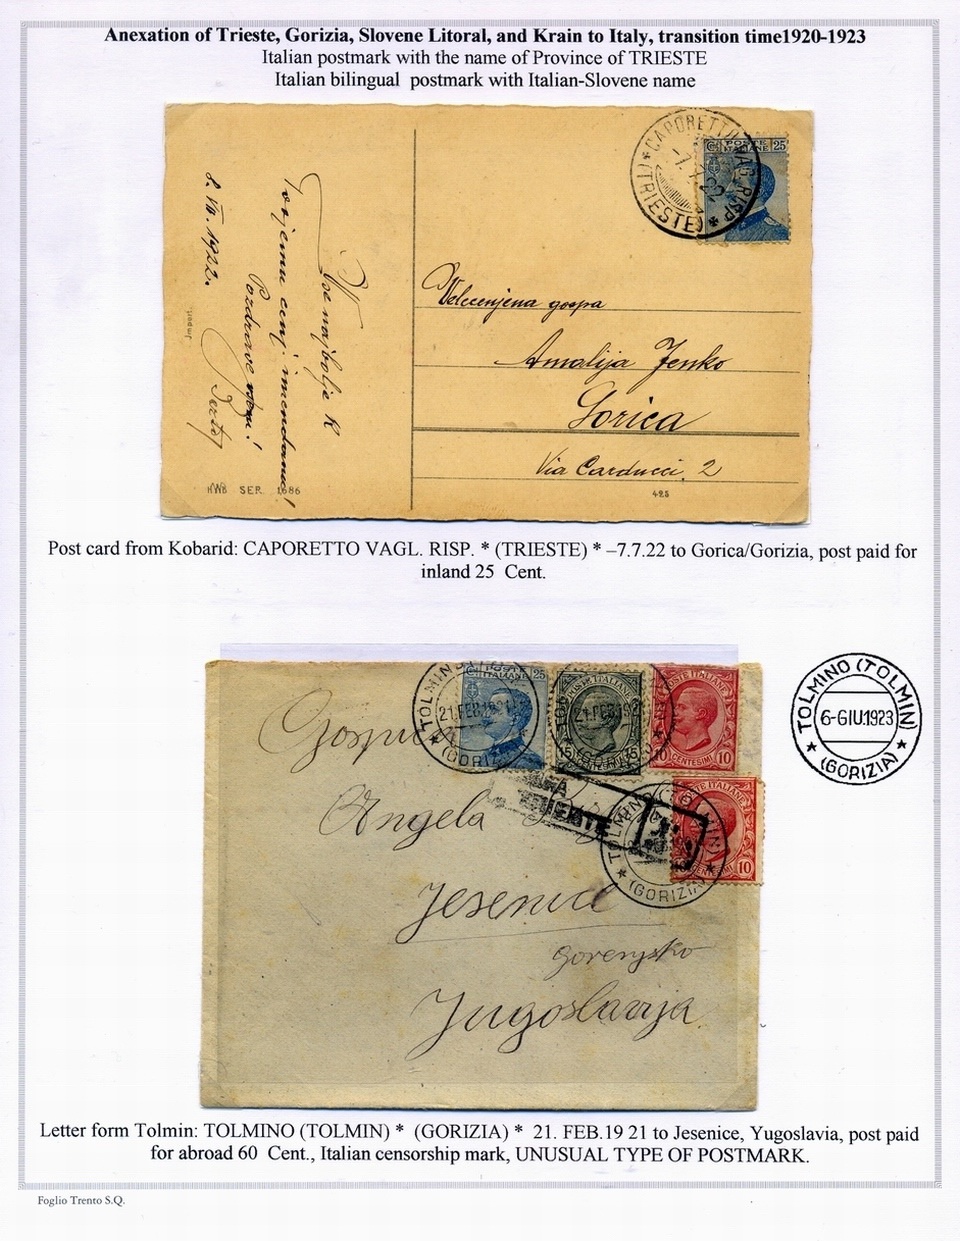 Anexation of Trieste, Gorizia, Slovene Litoral, and Krain to Italy, transition time1920-1923
Italian postmark with the name of Province of TRIESTE
Italian bilingual postmark with Italian-Slovene name
CAPORETTO VAGL. RISP.
* (TRIESTE) *
POSTE ITALIANE 25
Vse najbolje k
Tvojemu cenj. imendanu!
Pozdrave vsem!
8. VII. 1922.
Import.
HWB SER. 1686
Velecenjena gospa
Amalija Jenko
Gorica
Via Carducci, 2
425
Post card from Kobarid: CAPORETTO VAGL. RISP. * (TRIESTE) * –7.7.22 to Gorica/Gorizia, post paid for
inland 25 Cent.
25
POSTE ITALIANE
15 15
CENTESIMI
POSTE ITALIANE
10 CENTESIMI 10
TOLMINO
21.FEB.1921
* (GORIZIA)
21.FEB.192
TRIESTE
POSTE ITALIANE
CENTESIMI 10
* TOLMINO (TOLMIN) *
(GORIZIA)
Angela
Jesenice
Gorenjsko
Jugoslavija
TOLMINO (TOLMIN)
6-GIU1923
* (GORIZIA) *
Letter form Tolmin: TOLMINO (TOLMIN) * (GORIZIA) * 21. FEB.19 21 to Jesenice, Yugoslavia, post paid
for abroad 60 Cent., Italian censorship mark, UNUSUAL TYPE OF POSTMARK.
Foglio Trento S.Q.